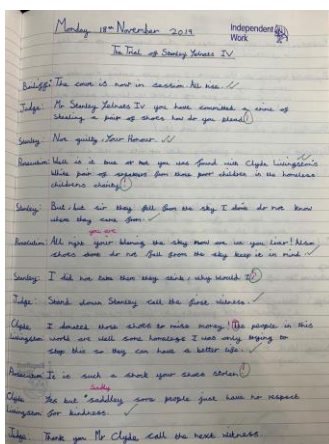 Monday 18th November 2019
Independent Work
The Trial of Stanley Yelnats IV
Bailiff: The court is now in session. All rise.
Judge: Mr Stanley Yelnats IV you have committed a crime of
stealing a pair of shoes how do you plead!
Stanley: Not guilty, Your Honour.
Prosecution: Well is it true that you was found with Clyde Livingston's
white pair of sneakers from those poor children in the homeless
childrens charity!
Stanley: But-but sir they fell from the sky I do not know
where they came from.
you are
Prosecution: All right your blaming the sky now are we you liar! Also
shoes do not fall from the sky keep it in mind.
Stanley: I did not take them they stink, why would I?
Judge: Stand down Stanley call the first witness.
Clyde Livingston: I donated those shoes to raise money! The people in this
world are well some homeless I was only trying to
stop this so they can have a better life.
Prosecution: It is such a shock your shoes stolen!
Sadly
Clyde Livingston: Yes but saddley some people just have no respect
for kindness.
Judge: Thank you Mr Clyde call the next witness.